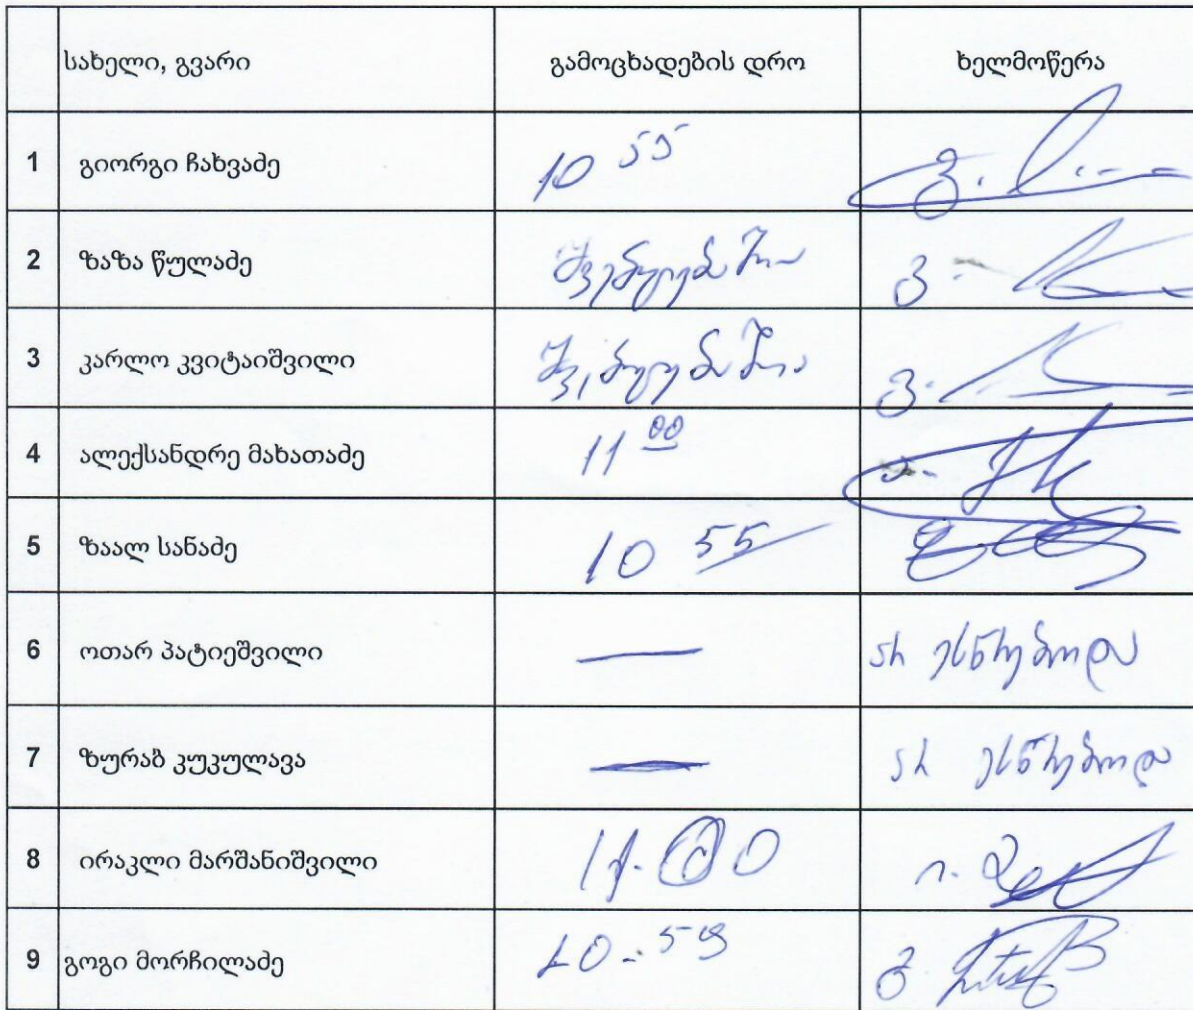 სახელი, გვარი გამოცხადების დრო ხელმოწერა
1 გიორგი ჩახვაძე 10 55
2 ზაზა წულაძე შვებულებაშია
3 კარლო კვიტაიშვილი შვებულებაშია
4 ალექსანდრე მახათაძე 11 00
5 ზაალ სანაძე 10 55
6 ოთარ პატიეშვილი — არ ესწრებოდა
7 ზურაბ კუკულავა — არ ესწრებოდა
8 ირაკლი მარშანიშვილი 11.00
9 გოგი მორჩილაძე